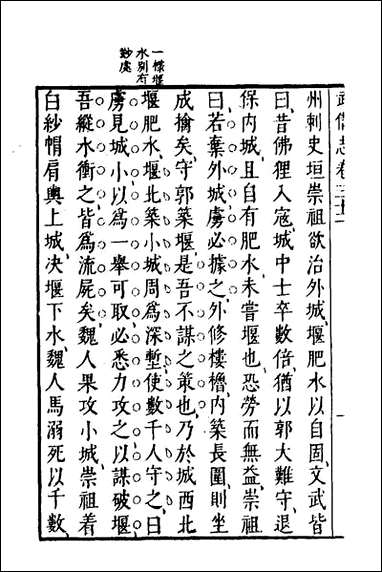 一樣堰
水別有
妙處
武備志卷三十二
州刺史垣崇祖欲治外城堰肥水以自固文武皆
曰昔佛狸入寇城中士卒數倍猶以郭大難守退
保內城且自有肥水未嘗堰也恐勞而無益崇祖
曰若棄外城虜必據之外修樓櫓內築長圍則坐
成擒矣守郭築堰是吾不謀之策也乃於城西北
堰肥水堰北築小城周爲深塹使數千人守之曰
虜見城小以爲一舉可取必悉力攻之以謀破堰
吾縱水衝之皆爲流屍矣魏人果攻小城崇祖着
白紗帽肩輿上城决堰下水魏人馬溺死以千數